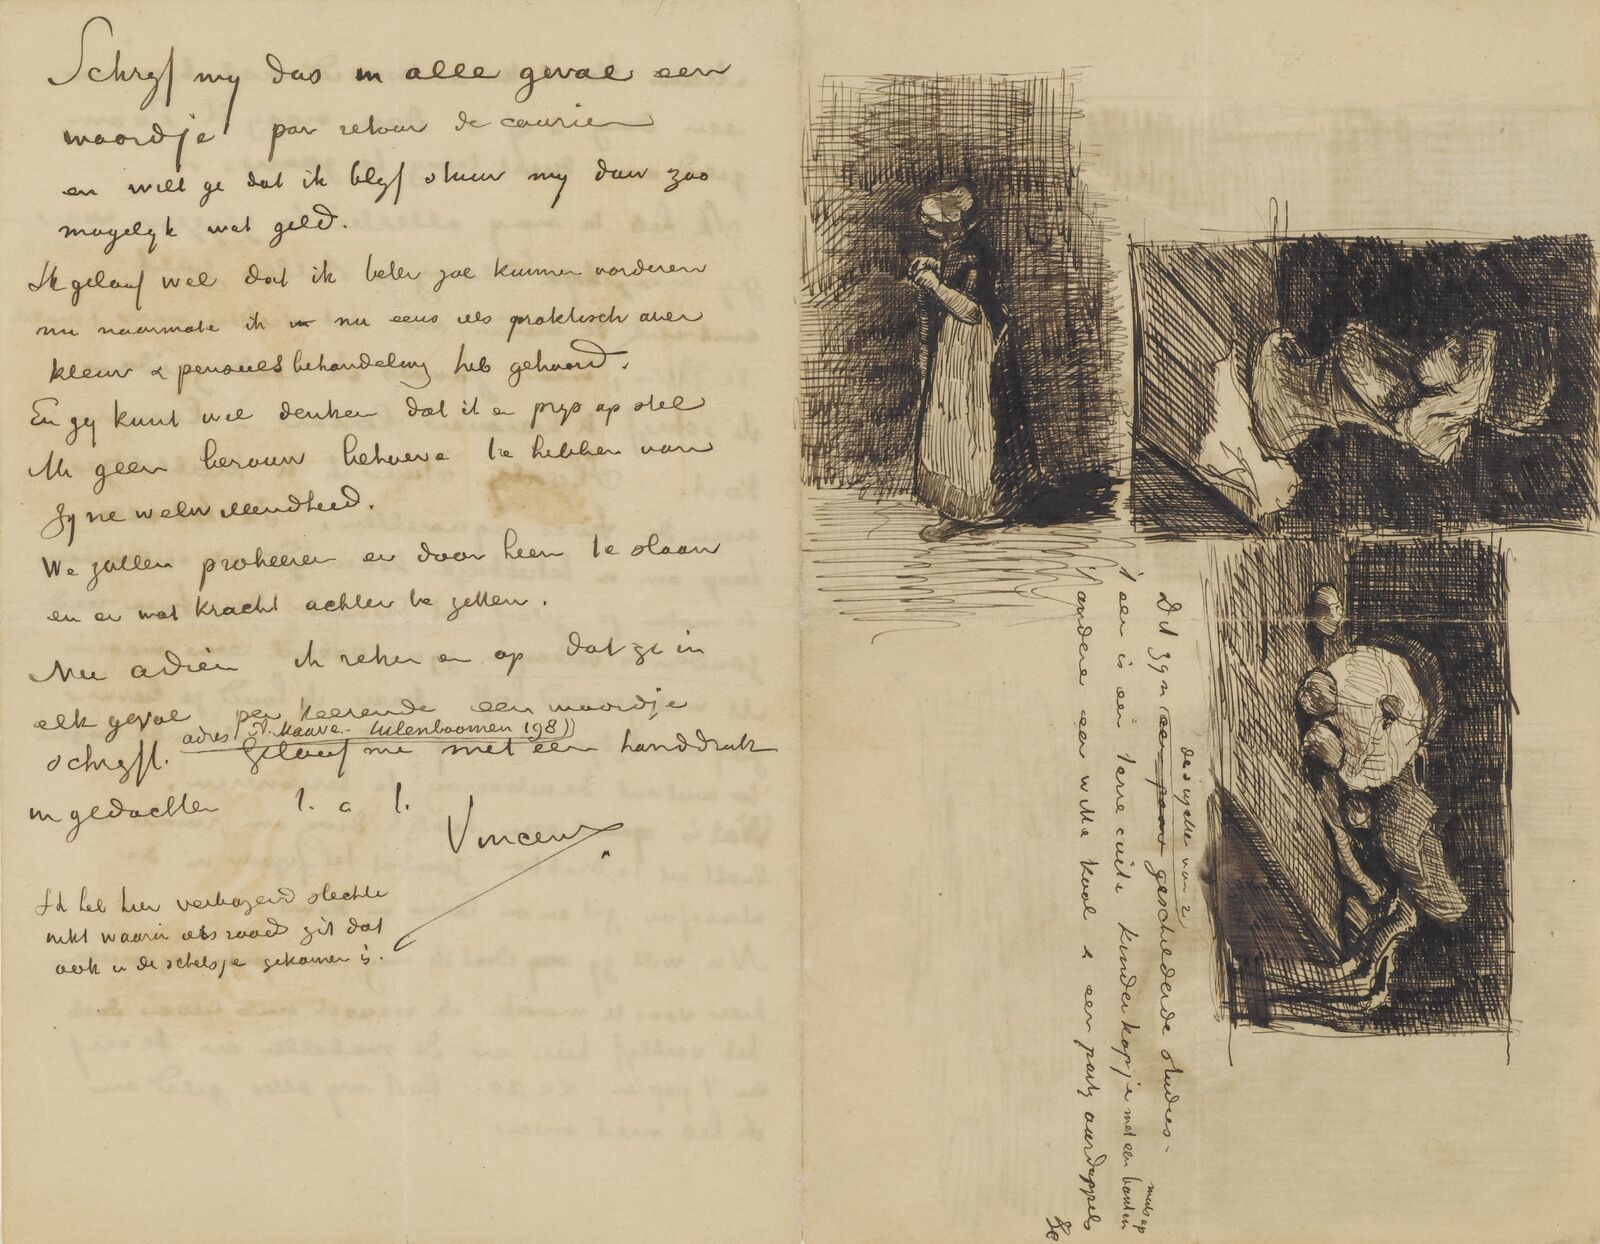 Schryf my dus in alle geval een
woordje par retour de courier
en wilt ge dat ik blyf stuur my dan zoo
mogelyk wat geld.
Ik geloof wel dat ik beter zal kunnen vorderen
nu naarmate ik nu eens iets praktisch over
kleur & penseelsbehandeling heb gehoord.
En gy kunt wel denken dat ik er prys op stel
M. geen berouw behoeve te hebben van
zyne welwillendheid.
We zullen probeeren er door heen te slaan
en er wat kracht achter te zetten.
Nu adieu ik reken er op dat ge in
elk geval per keerende een woordje
adres A. Mauve. Uilenboomen 198
schryft. Geloof me met een handdruk
in gedachten t. a t.
Vincent
Ik heb hier verbazend slechte
inkt waarin iets roods zit dat
ook in de schetsje gekomen is.
Dit zyn een paar geschilderde studies.
de schetsjes van 2
't een is een terre cuite kinderkopje met een bonten
muts op
't andere een witte kool & een party aardappels
&c